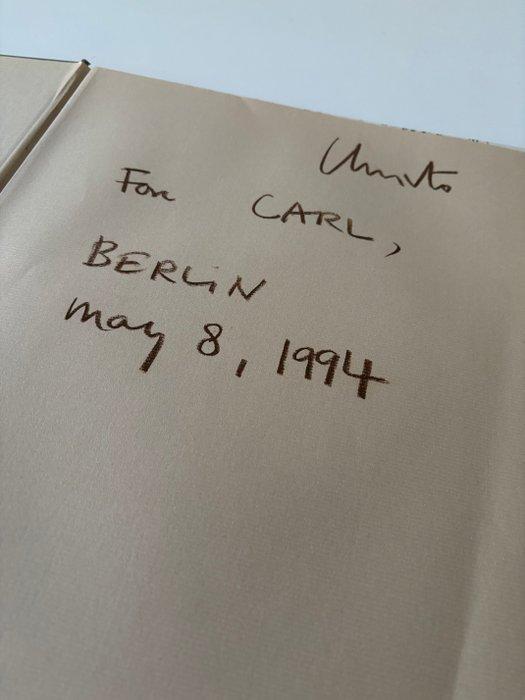 For CARL,
BERLiN
may 8, 1994